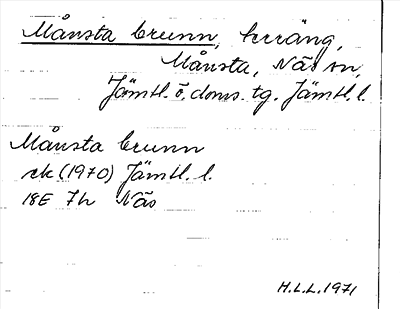 Månsta brunn, terräng,
Månsta, Näs sn,
Jämtl. ö. doms. tg. Jämtl. l.
Månsta brunn
ek (1970) Jämtl. l.
18E 7h Näs
H.L.L. 1971